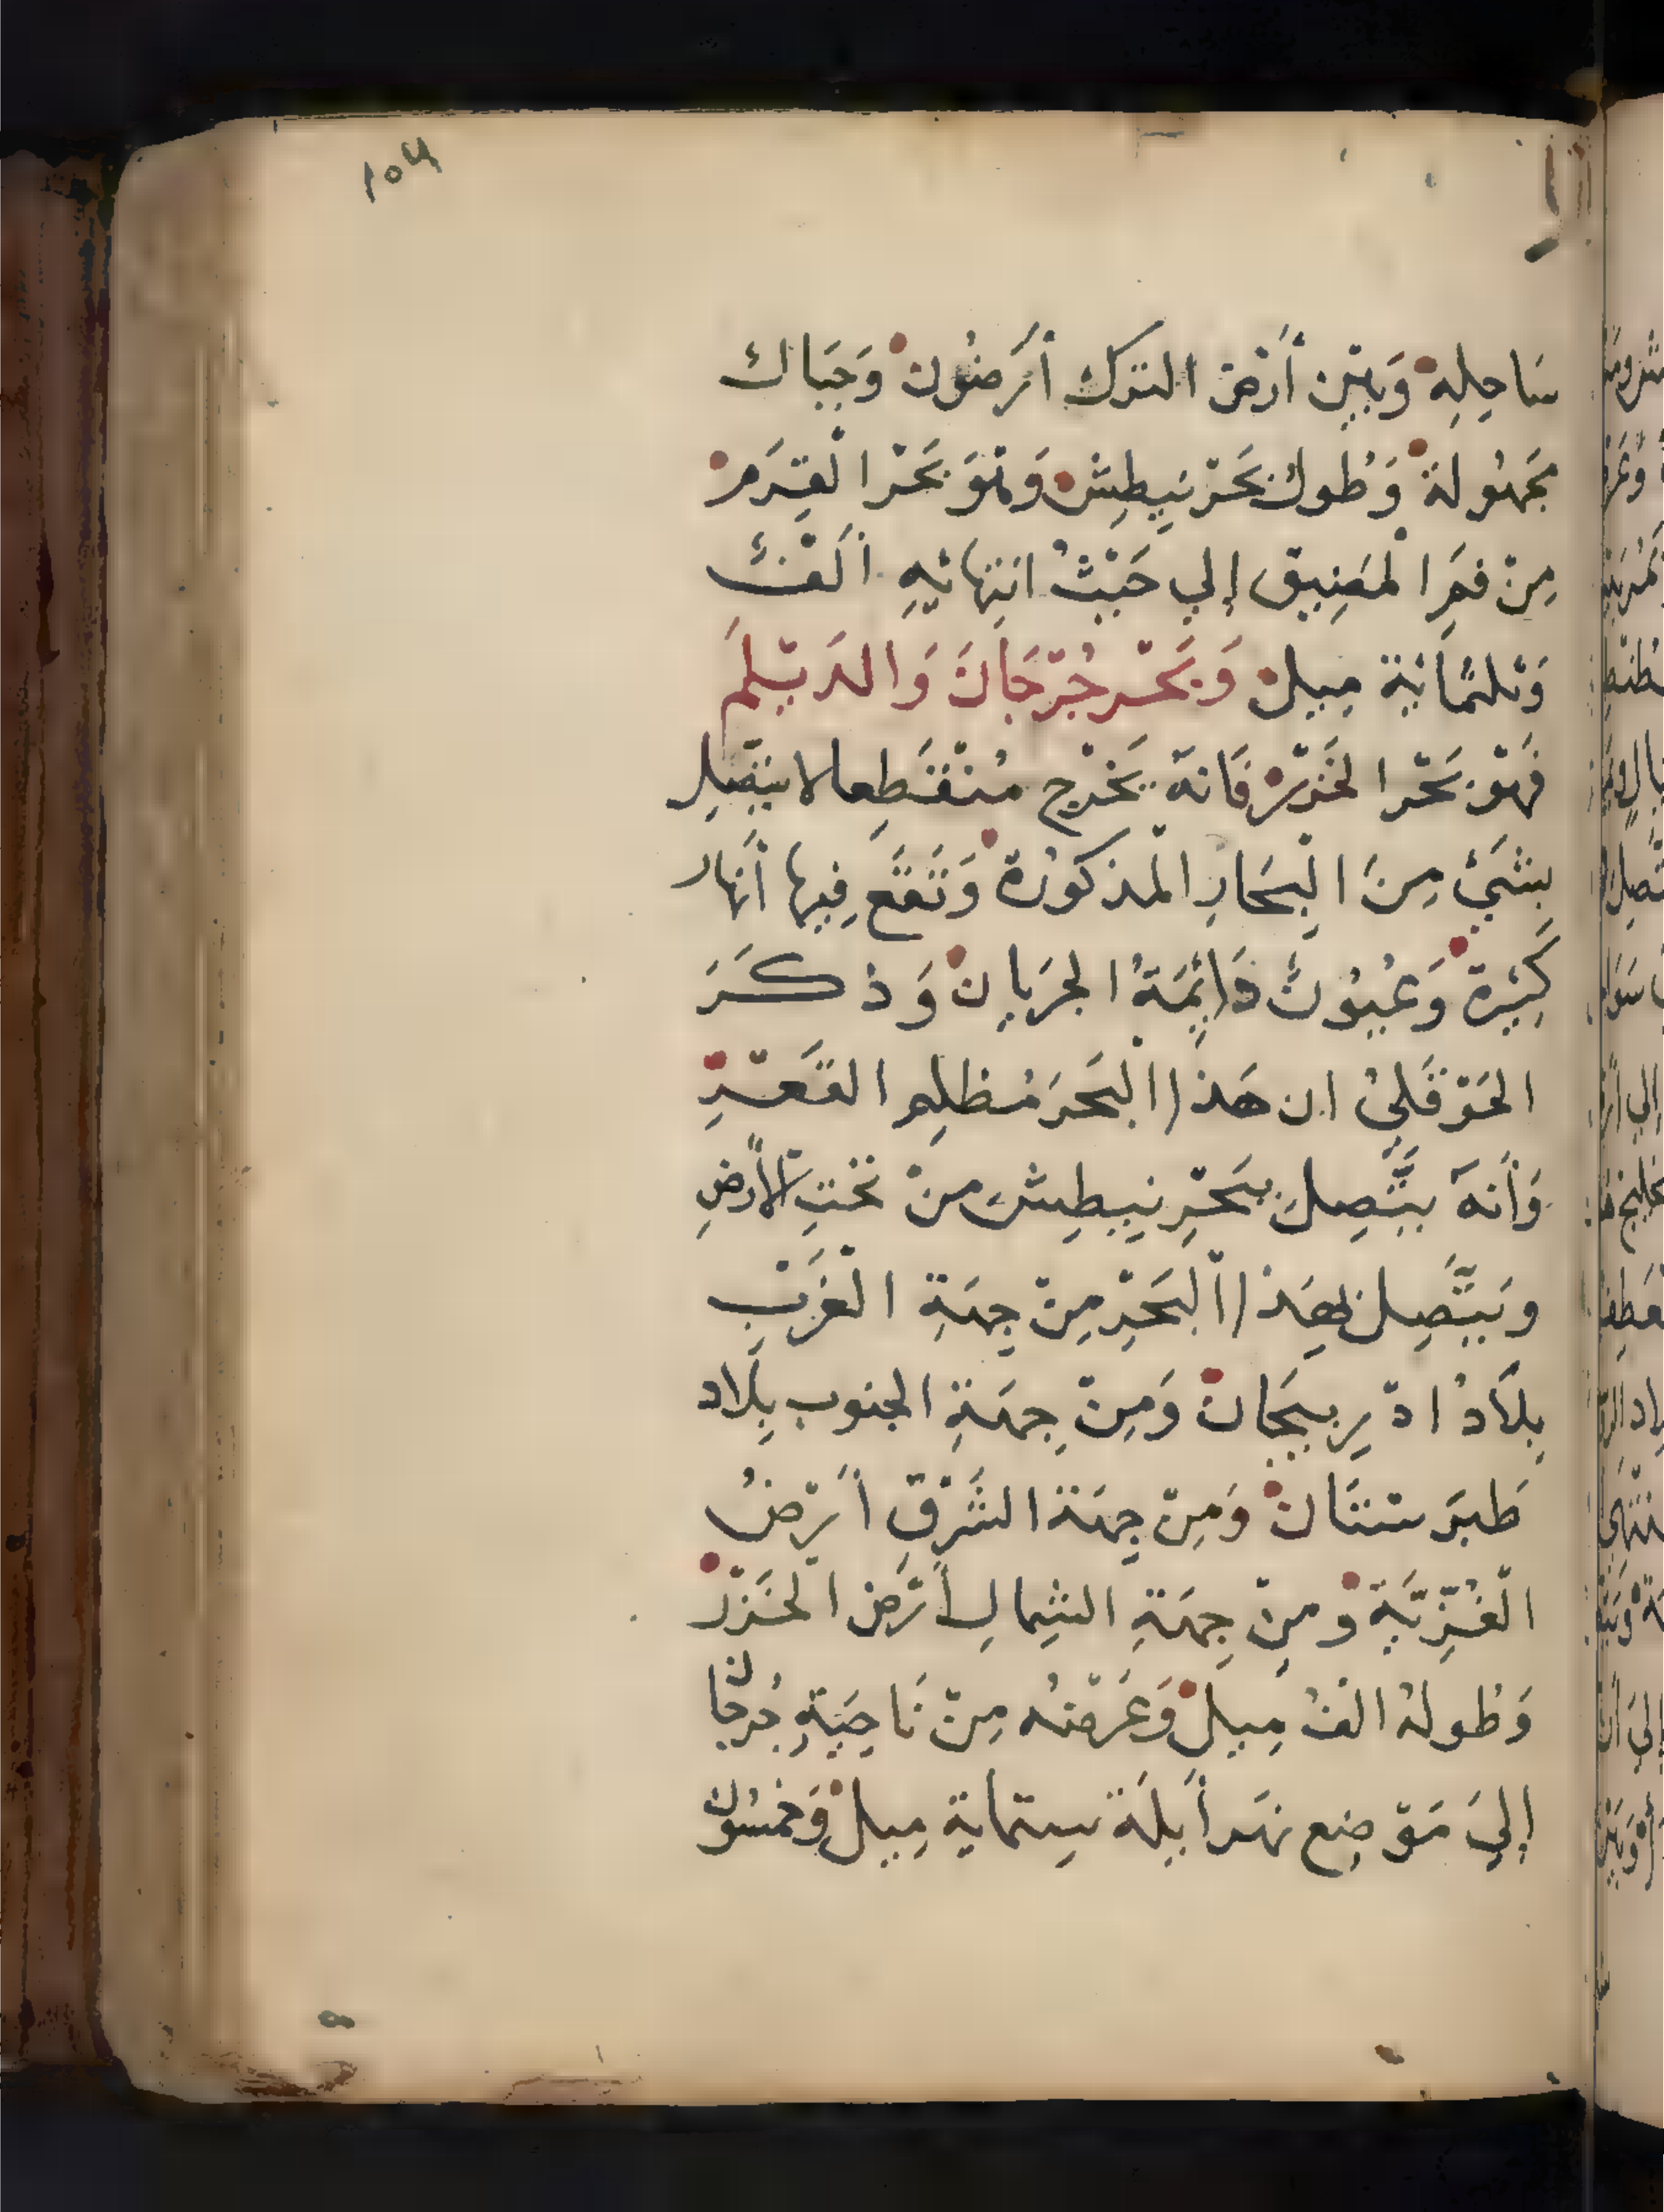 ١٥٣
سَاحِلِهِ وَبَيْن أَرْضِ التُرك أَرَضُون وَجِبَاكٌ
مَجهُولة وَطُول بَحَرْ نيِطِش وَهوَ بَحْر الْقِرَم
مِنْ فمِ الْمَضِيق إلي حَيْثُ انتِهائيهِ أَلفٌ
وَثلثمائية مِيل وَبَحْر جُرْجَانَ وَالدَيْلَمَ
فَهْوَ بَحْر الخَزَرْ فَانهّ يَخْرج مُنْقَطِعا لا يَتَّصِل
بِشَيْءٍ مِنَ الْبِحَارِ المْذكوُرة وَتَقَعَ فِيها أَنهار
كَثِيرة وَعُيُونٌ دَايِمَةُ الجرَيانْ وَذكَرَ
الحَوْقَليُ ان هَذا الْبَحرَ مُظلِم القَعْرِ
وَأنهّ يَتَّصِل بِبَحْرِ نيِطِش منْ تَحْتِ الأرضِ
ويَتَّصِل بِهَذا الْبَحْرِ مِنْ جِهَةِ الْغَرْبِ
بِلاَدُ ادْرِبيجَانْ وَمِنْ جِهَةِ الجنوب بِلاد
طَبَرَ سْتَان وَمِنْ جِهَة الشَرْقِ أَرْضُ
الْغُزِّيَّةِ ومِنْ جِهَةِ الشِمالِ أَرْض الْخَزَرْ
وَطُولهُ الفُ مِيلٍ وَعَرْضُه مِنْ نَاحِيَةِ جُرجَان
إليَ مَوْضِع نهَر أَبِلَة سِتماية مِيلْ وَخمْسُون